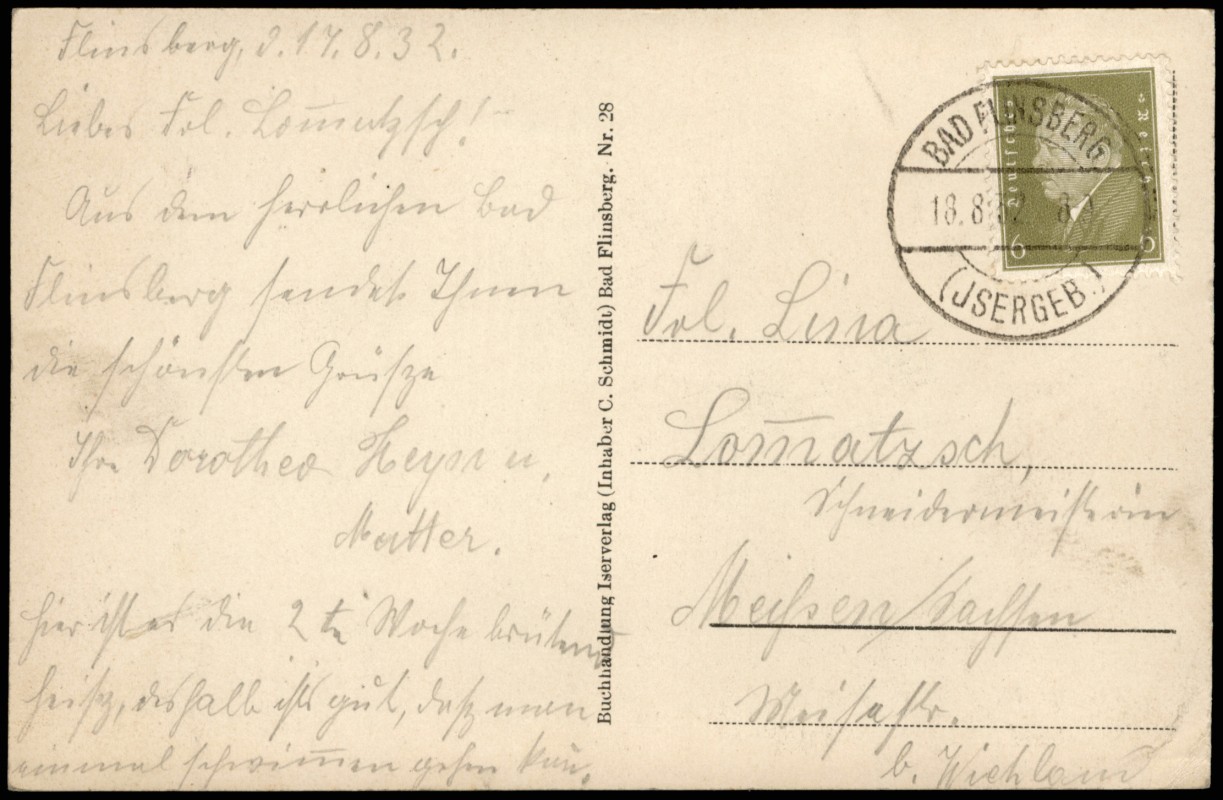 Flinsberg, d. 17.8.32.
Liebes Frl. Lom̅atzsch!
Aus dem herrlichen Bad
Flinsberg sendet Ihnen
die schönsten Grüsze
Ihre Dorothea Heyn u.
Mutter.
Hier ist es die 2te Woche brütend
heisz, deshalb ist's gut, dasz man
einmal schwim̅en gehen kan̅.
Buchhandlung Iserverlag (Inhaber C. Schmidt) Bad Flinsberg. Nr. 28
Deutsches Reich
6 6
BAD FLINSBERG
18.8.32
(JSERGEB.)
Frl. Lina
Lom̅atzsch,
Schneidermeisterin
Meißen/Sachsen
b. Wiehland